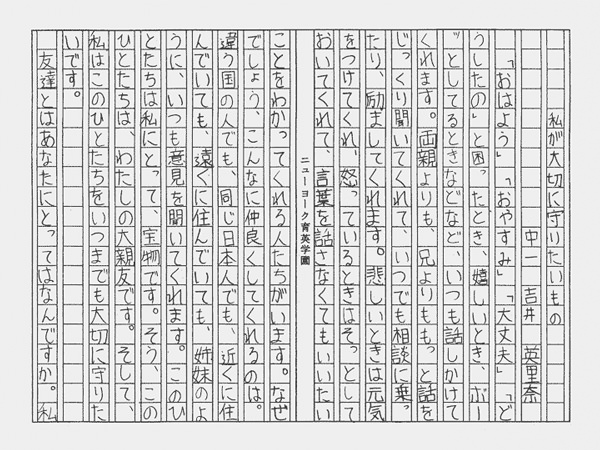 私が大切に守りたいもの
中一 吉井 英里奈
「おはよう」「おやすみ」「大丈夫」「ど
うしたの」と困ったとき、嬉しいとき、ボー
ッとしてるときなどなど、いつも話しかけて
くれます。両親よりも、兄よりももっと話を
じっくり聞いてくれて、いつでも相談に乗っ
たり、励ましてくれます。悲しいときは元気
をつけてくれ、怒っているときはそっとして
おいてくれて、言葉を話さなくてもいいたい
ニューヨーク育英学園
ことをわかってくれる人たちがいます。なぜ
でしょう、こんなに仲良くしてくれるのは。
違う国の人でも、同じ日本人でも、近くに住
んでいても、遠くに住んでいても、姉妹のよ
うに、いつも意見を聞いてくれます。このひ
とたちは私にとって、宝物です。そう、この
ひとたちは、わたしの大親友です。そして、
私はこのひとたちをいつまでも大切に守りた
いです。
友達とはあなたにとってはなんですか。私